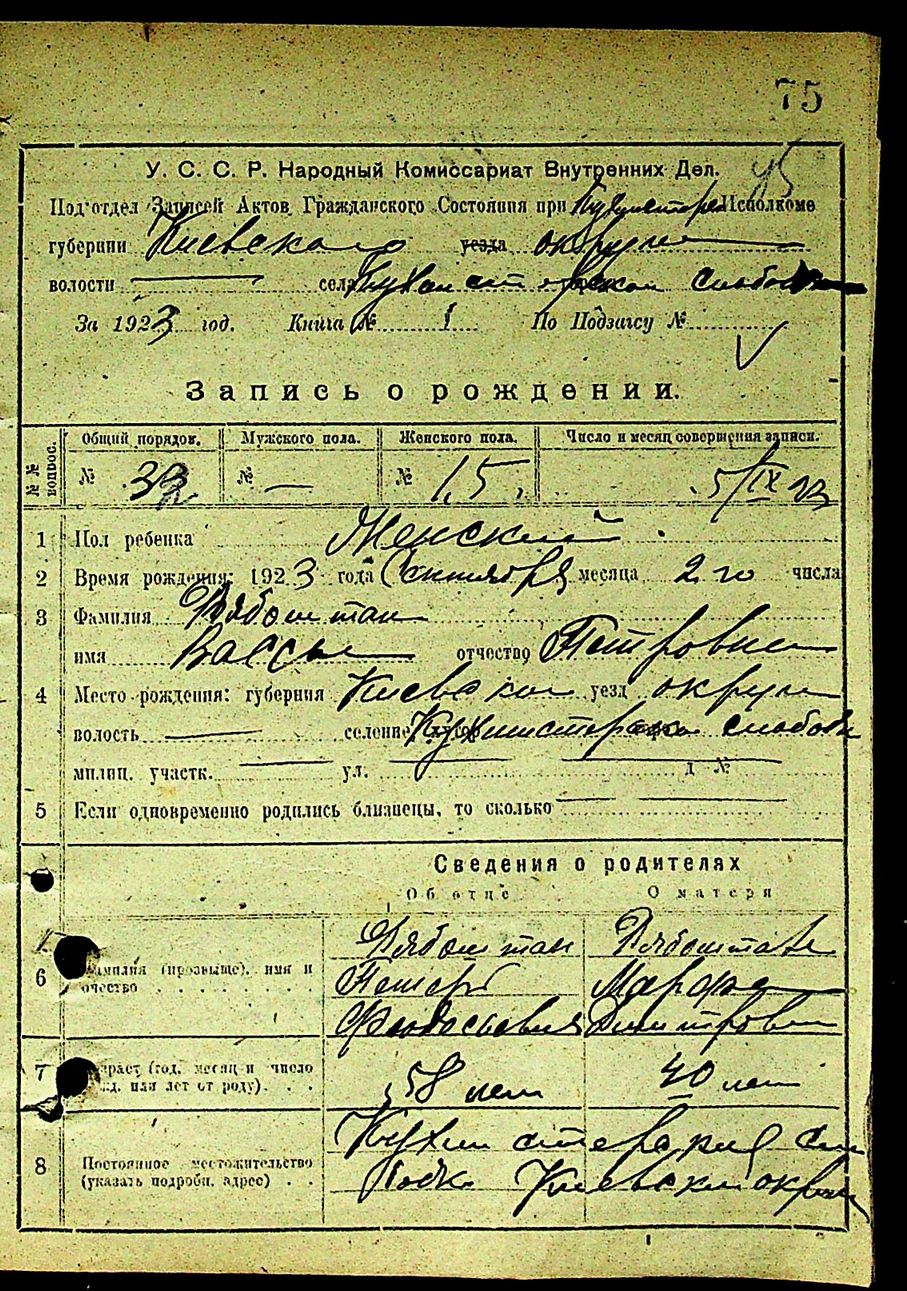 75
95
У. С. С. Р. Народный Комиссариат Внутренних Дел.
Под'отдел Записей Актов Гражданского Состояния при Исполкоме
губернии Киевского уезда округа
волости — села слободы
За 1923 год. Книга № 1 По Подзагсу №
Запись о рождении.
№№ вопрос.
Общий порядов. Мужского пола. Женского пола. Число и месяц совершения записи.
№ 32 № — № 15, 5/IX 23
1 Пол ребенка Женский.
2 Время рождения: 1923 года Сентября месяца 2го числа
3 Фамилия Рябоштан
имя Вассы отчество Петровна
4 Место рождения: губерния Киевская уезд округа
волость — селение слобода
милиц. участк. — ул. — д № —
5 Если одновременно родились близнецы, то сколько — —
Сведения о родителях
Об отце О матери
6 Фамилия (прозвыще), имя и отчество
Рябоштан Рябоштан
Петр Марфа
Феодосьевич Дмитровна
7 Возраст (год, месяц и число рожд. или лет от роду). . .
58 лет 40 лет
8 Постоянное местожительство (указать подробн. адрес) . .
Кухмистерская сло
бодка Киевской округи